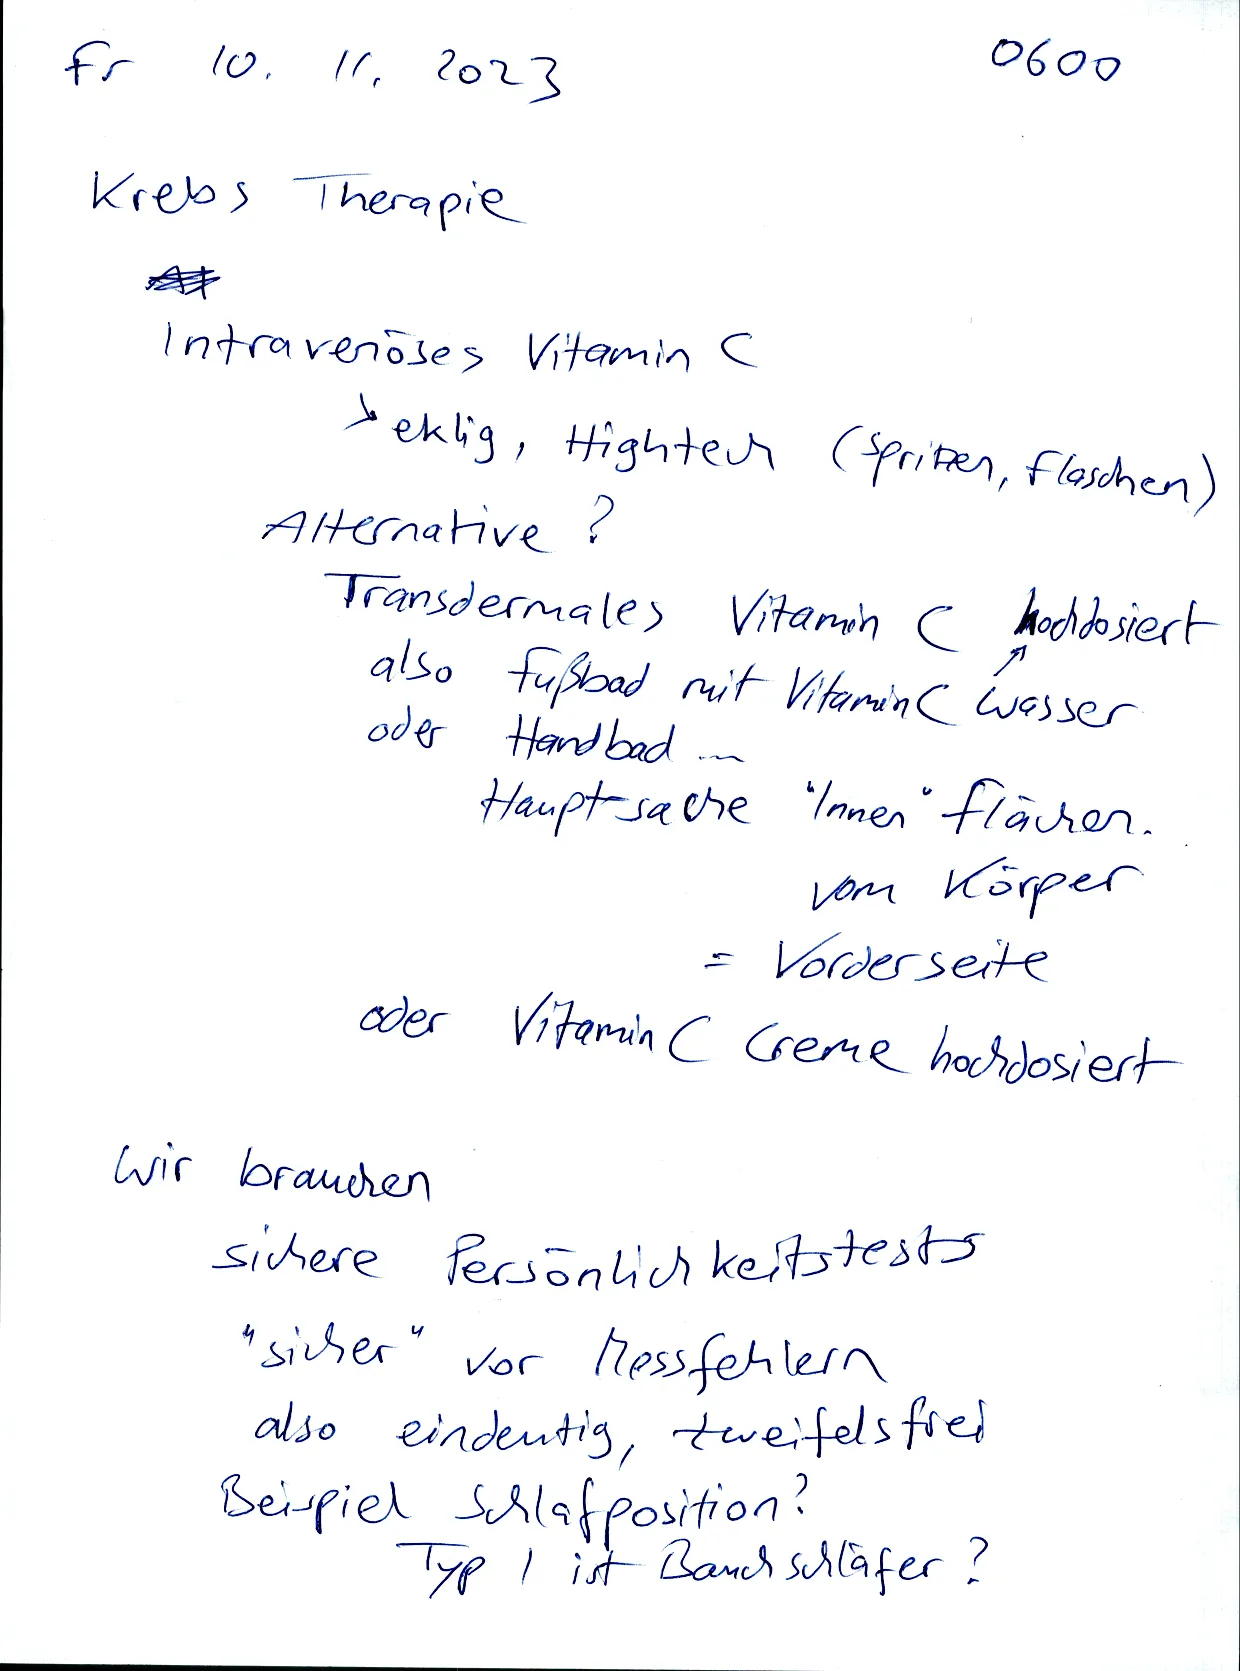 Fr 10. 11. 2023 0600
Krebs Therapie
Intravenöses Vitamin C
↘ eklig, Hightech (Spritzen, Flaschen)
Alternative?
Transdermales Vitamin C hochdosiert
also Fußbad mit Vitamin C Wasser
oder Handbad ...
Hauptsache "Innen" flächen.
vom Körper
= Vorderseite
oder Vitamin C Creme hochdosiert
Wir brauchen
sichere Persönlichkeitstests
"sicher" vor Messfehlern
also eindeutig, zweifelsfrei
Beispiel Schlafposition?
Typ 1 ist Bauchschläfer?